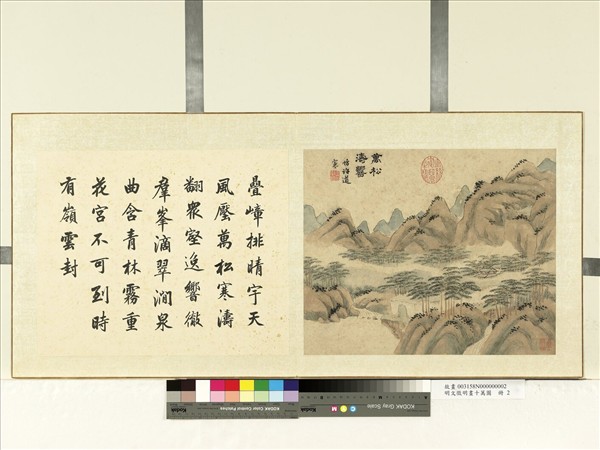 萬松
疊嶂排晴宇天
風壓萬松寒濤
翻衆壑逸響徹
羣峯滴翠澗泉
曲含青林霧重
花宮不可到時
有嶺雲封
KODAK Color Control Patches
KODAK Gray Scale
故畫 003158N000000002
明文徵明畫十萬圖 冊 2